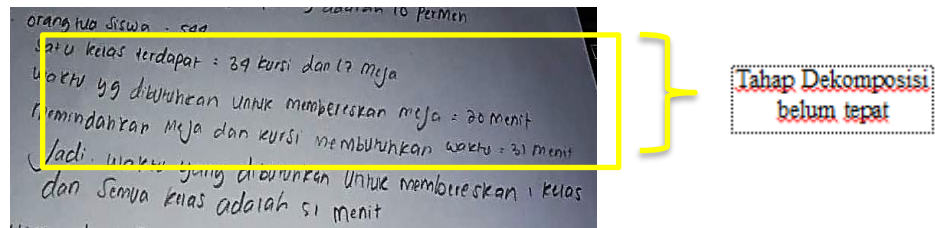 adalah 10 permen
orang tua siswa . 599
Satu kelas terdapat : 34 kursi dan 17 meja
waktu yg dibutuhkan untuk membereskan meja = 20 menit
memindahkan meja dan kursi membutuhkan waktu = 31 menit
Jadi. waktu yang dibutuhkan untuk membereskan 1 kelas
dan semua kelas adalah 51 menit
Tahap Dekomposisi
belum tepat